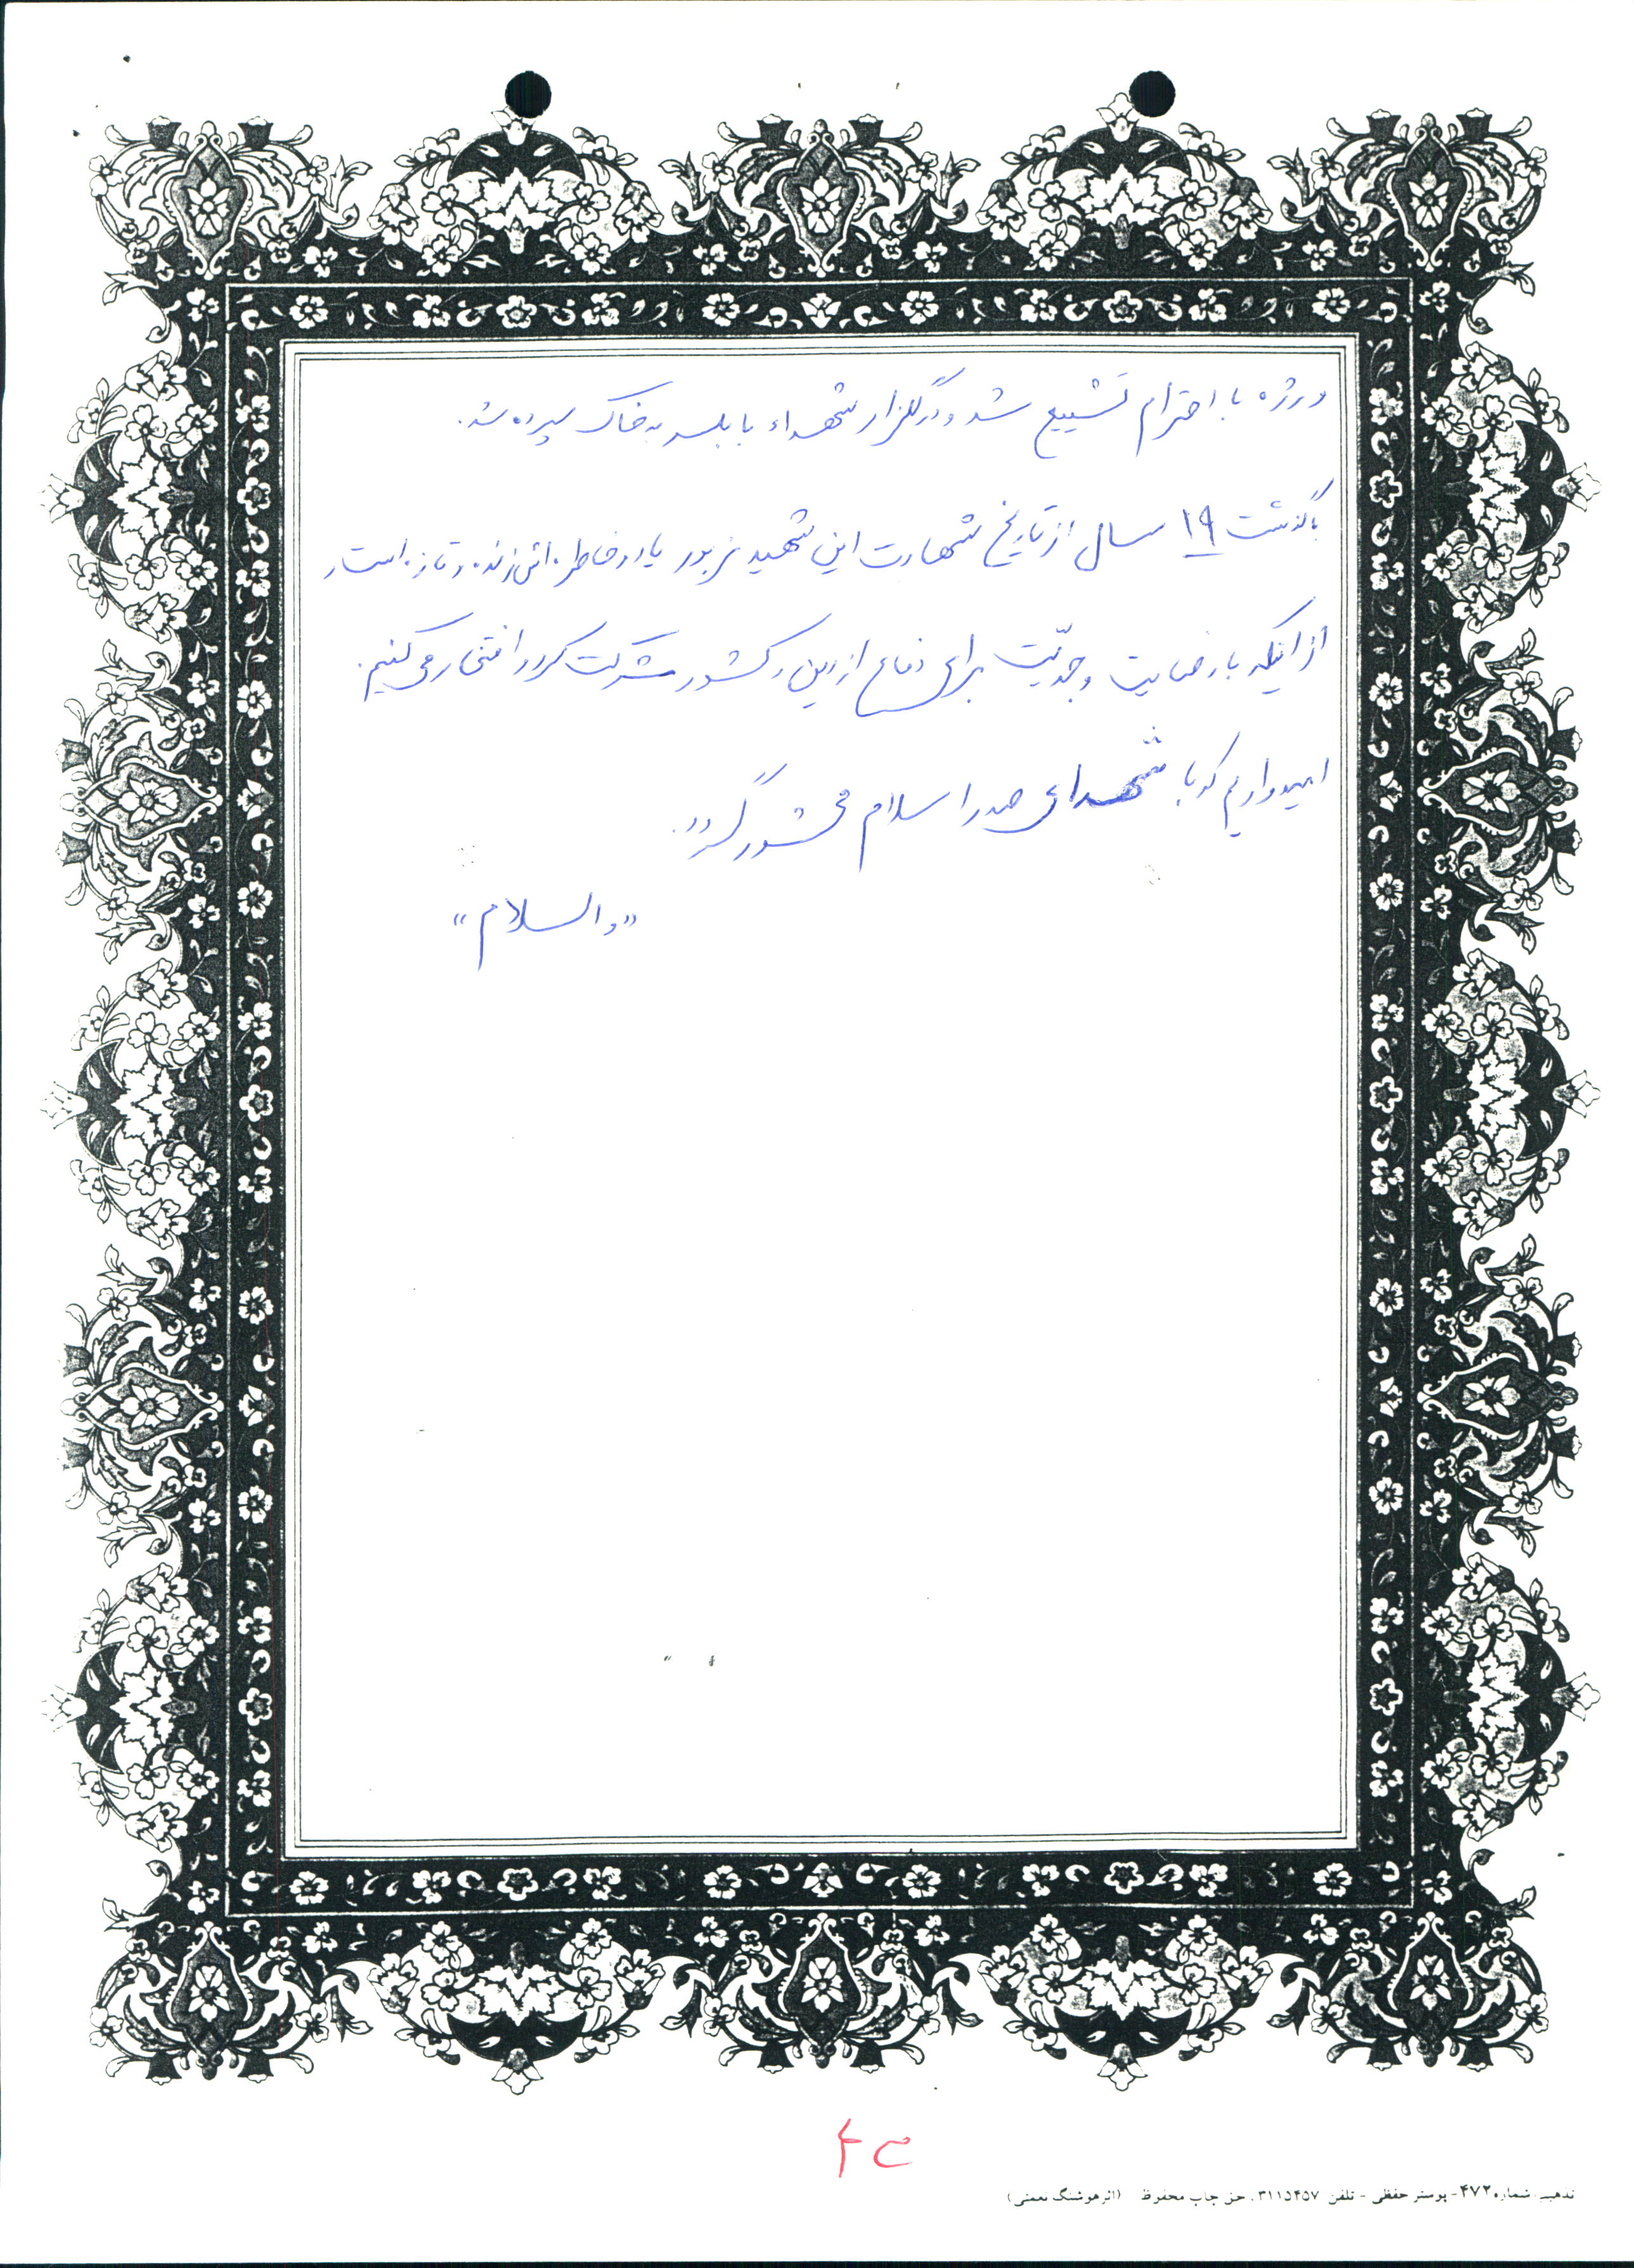 ورزه با احترام تشییع شد و در گلزار شهداء بابلسر به خاک سپرده شد.
با گذشت ۱۹ سال از تاریخ شهادت این شهید مزبور یاد و خاطره‌اش زنده و تازه است و
از اینکه با رضایت و جدیّت برای دفاع از دین و کشور شرکت کرد افتخار می‌کنیم.
امیدواریم که با شهدای صدر اسلام محشور گردد.
«والسلام»
تذهیب شماره ۴۷۲ - پوستر حفظی - تلفن ۳۱۱۵۴۵۷ . حق چاپ محفوظ (اثر هوشنگ نعمتی)